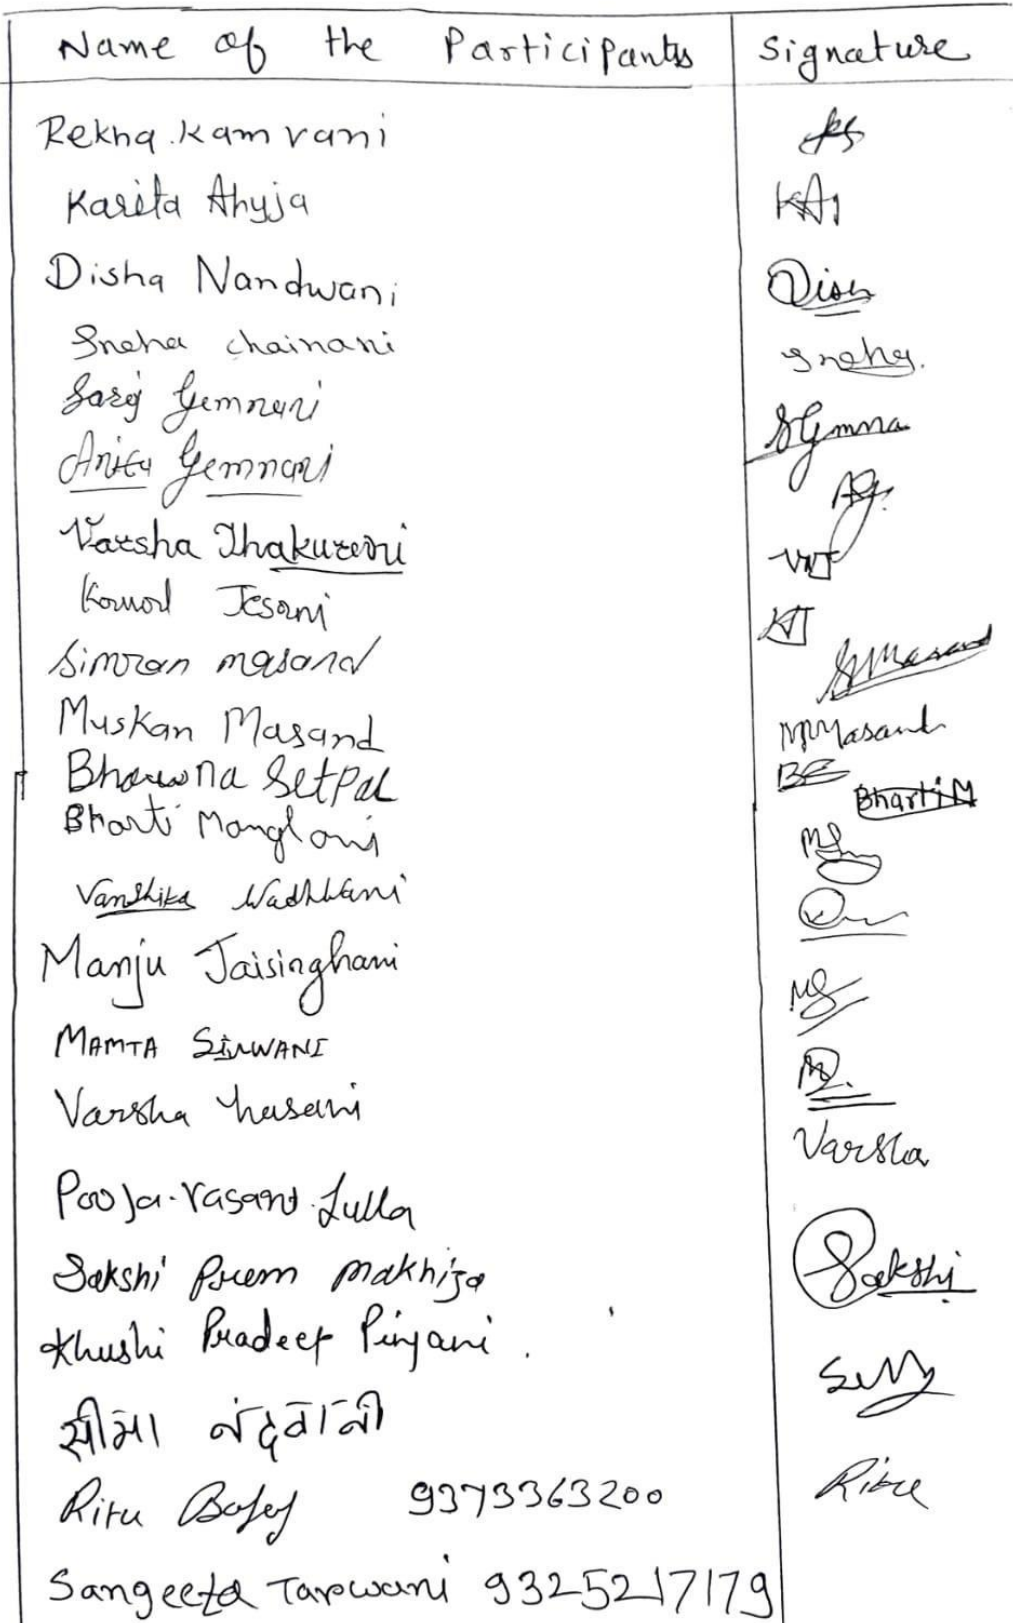 Name of the Participants Signature
Rekha.Kamrani
Kavita Ahyja KA1
Disha Nandwani Dish
Sneha Chainani Sneha.
Saroj Gemnani SGemna
Anita Gemnani AG.
Varsha Thakurani VNT
Komal Jesani KJ
Simran masand SMasand
Muskan Masand MMasand
Bhawna Setpal BS
Bharti Manglani BhartiM
Vanshika Wadhwani
Manju Jaisinghani
MAMTA SIRWANI
Varsha hasani Varsha
Pooja.Vasant.Lulla
Sakshi Prem Makhija Sakshi
Khushi Pradeep Pinjani.
सीमा नंदवानी
Ritu 9373363200 Ritu
Sangeeta Tarwani 9325217179